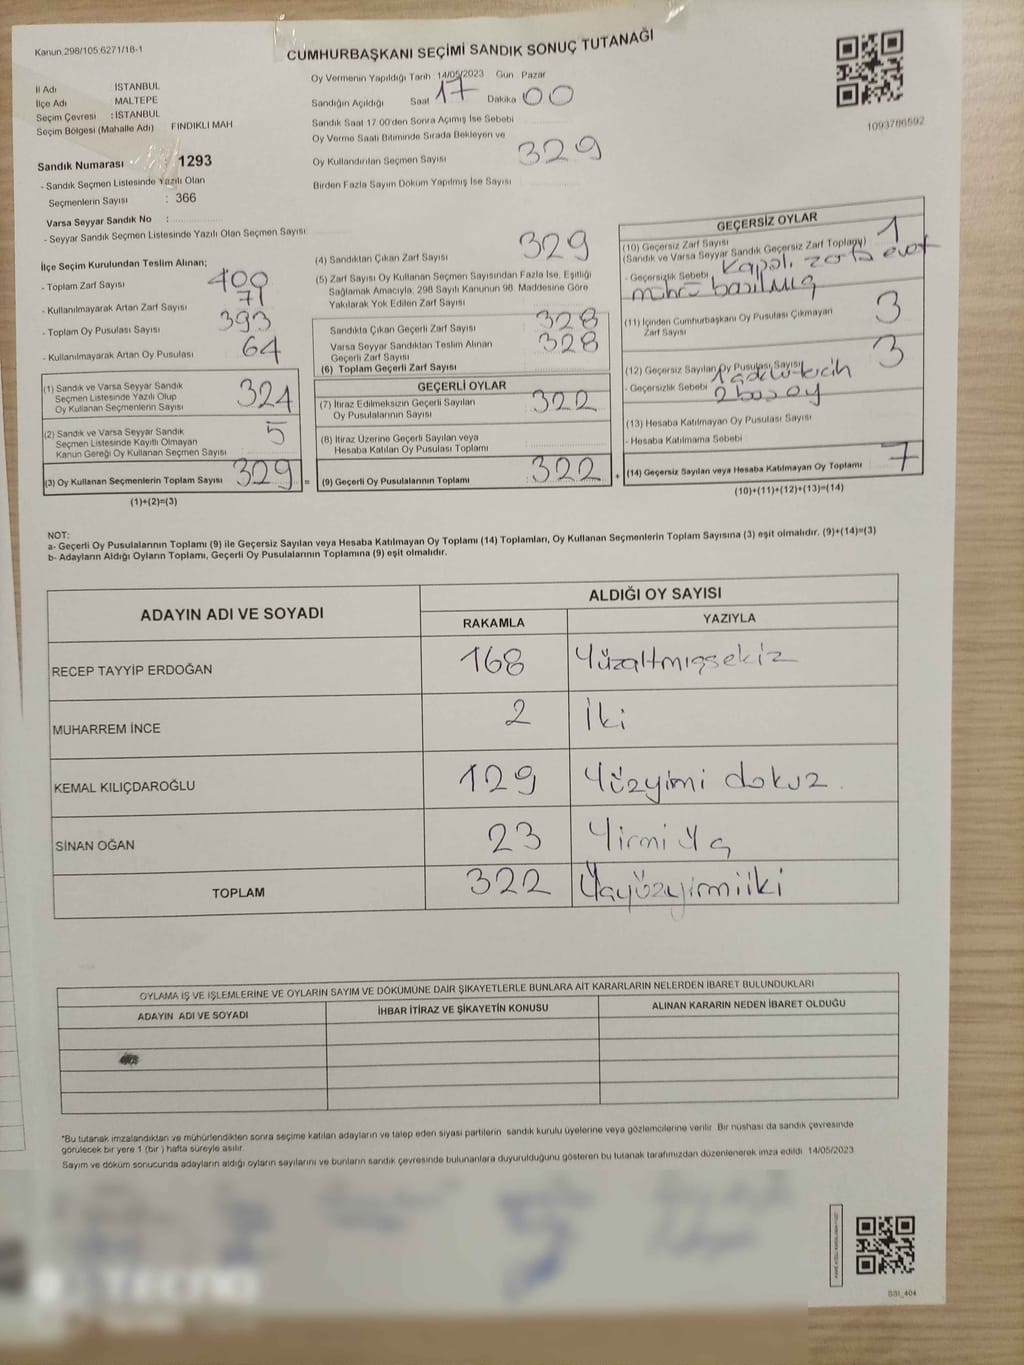 Kanun 298/105,6271/18-1
CUMHURBAŞKANI SEÇİMİ SANDIK SONUÇ TUTANAĞI
İl Adı İSTANBUL
İlçe Adı MALTEPE
Seçim Çevresi : İSTANBUL
Seçim Bölgesi (Mahalle Adı) FINDIKLI MAH
Sandık Numarası 1293
- Sandık Seçmen Listesinde Yazılı Olan
Seçmenlerin Sayısı : 366
Varsa Seyyar Sandık No :
- Seyyar Sandık Seçmen Listesinde Yazılı Olan Seçmen Sayısı:
Oy Vermenin Yapıldığı Tarih 14/05/2023 Gün Pazar
Sandığın Açıldığı Saat 17 Dakika 00
Sandık Saat 17 00'den Sonra Açımış İse Sebebi
Oy Verme Saati Bitiminde Sırada Bekleyen ve
Oy Kullandırılan Seçmen Sayısı 329
Birden Fazla Sayım Döküm Yapılmış İse Sayısı
1093786592
İlçe Seçim Kurulundan Teslim Alınan;
- Toplam Zarf Sayısı 400
- Kullanılmayarak Artan Zarf Sayısı 71
- Toplam Oy Pusulası Sayısı 393
- Kullanılmayarak Artan Oy Pusulası 64
(1) Sandık ve Varsa Seyyar Sandık
Seçmen Listesinde Yazılı Olup
Oy Kullanan Seçmenlerin Sayısı 324
(2) Sandık ve Varsa Seyyar Sandık
Seçmen Listesinde Kayıtlı Olmayan
Kanun Gereği Oy Kullanan Seçmen Sayısı 5
(3) Oy Kullanan Seçmenlerin Toplam Sayısı 329 =
(1)+(2)=(3)
(4) Sandıktan Çıkan Zarf Sayısı 329
(5) Zarf Sayısı Oy Kullanan Seçmen Sayısından Fazla İse, Eşitliği
Sağlamak Amacıyla, 298 Sayılı Kanunun 98. Maddesine Göre
Yakılarak Yok Edilen Zarf Sayısı
Sandıkta Çıkan Geçerli Zarf Sayısı 328
Varsa Seyyar Sandıktan Teslim Alınan
Geçerli Zarf Sayısı 328
(6) Toplam Geçerli Zarf Sayısı
GEÇERLİ OYLAR
(7) İtiraz Edilmeksizin Geçerli Sayılan
Oy Pusulalarının Sayısı 322
(8) İtiraz Üzerine Geçerli Sayılan veya
Hesaba Katılan Oy Pusulası Toplamı
(9) Geçerli Oy Pusulalarının Toplamı 322 +
GEÇERSİZ OYLAR
(10) Geçersiz Zarf Sayısı 1
(Sandık ve Varsa Seyyar Sandık Geçersiz Zarf Toplamı)
- Geçersizlik Sebebi Kapalı zarfa evet
mührü basılmış
(11) İçinden Cumhurbaşkanı Oy Pusulası Çıkmayan
Zarf Sayısı 3
(12) Geçersiz Sayılan Oy Pusulası Sayısı 3
- Geçersizlik Sebebi 1 adetu tercih
2 boş oy
(13) Hesaba Katılmayan Oy Pusulası Sayısı
- Hesaba Katılmama Sebebi
(14) Geçersiz Sayılan veya Hesaba Katılmayan Oy Toplamı 7
(10)+(11)+(12)+(13)=(14)
NOT:
a- Geçerli Oy Pusulalarının Toplamı (9) ile Geçersiz Sayılan veya Hesaba Katılmayan Oy Toplamı (14) Toplamları, Oy Kullanan Seçmenlerin Toplam Sayısına (3) eşit olmalıdır. (9)+(14)=(3)
b- Adayların Aldığı Oyların Toplamı, Geçerli Oy Pusulalarının Toplamına (9) eşit olmalıdır.
ADAYIN ADI VE SOYADI ALDIĞI OY SAYISI
RAKAMLA YAZIYLA
RECEP TAYYİP ERDOĞAN 168 Yüzaltmışsekiz
MUHARREM İNCE 2 İki
KEMAL KILIÇDAROĞLU 129 Yüzyimi dokuz.
SİNAN OĞAN 23 Yirmi üç
TOPLAM 322 Üçyüzyirmiiki
OYLAMA İŞ VE İŞLEMLERİNE VE OYLARIN SAYIM VE DÖKÜMÜNE DAİR ŞİKAYETLERLE BUNLARA AİT KARARLARIN NELERDEN İBARET BULUNDUKLARI
ADAYIN ADI VE SOYADI İHBAR İTİRAZ VE ŞİKAYETİN KONUSU ALINAN KARARIN NEDEN İBARET OLDUĞU
*Bu tutanak imzalandıktan ve mühürlendikten sonra seçime katılan adayların ve talep eden siyasi partilerin sandık kurulu üyelerine veya gözlemcilerine verilir. Bir nüshası da sandık çevresinde
görülecek bir yere 1 (bir ) hafta süreyle asılır.
Sayım ve döküm sonucunda adayların aldığı oyların sayılarını ve bunların sandık çevresinde bulunanlara duyurulduğunu gösteren bu tutanak tarafımızdan düzenlenerek imza edildi. 14/05/2023
TECNO
SSI_404